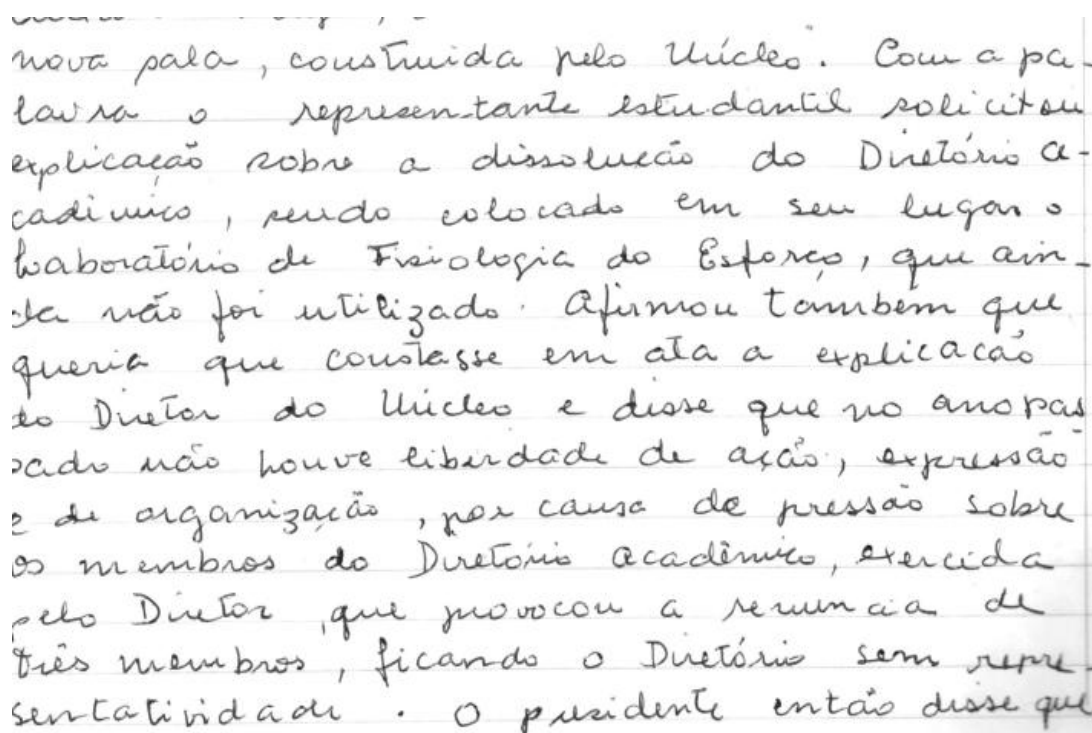 nova sala, construida pelo Núcleo. Com a pa-
lavra o representante estudantil solicitou
explicação sobre a dissolucão do Diretório A-
cadêmico, sendo colocado em seu lugar o
Laboratório de Fisiologia do Esforço, que ain-
da não foi utilizado. Afirmou também que
queria que constasse em ata a explicacão
do Diretor do Núcleo e disse que no ano pas
sado não houve liberdade de ação, expressão
e de organização, por causa de pressão sobre
os membros do Diretório Acadêmico, exercida
pelo Diretor, que provocou a renuncia de
três membros, ficando o Diretório sem repre-
sentatividade. O presidente então disse que